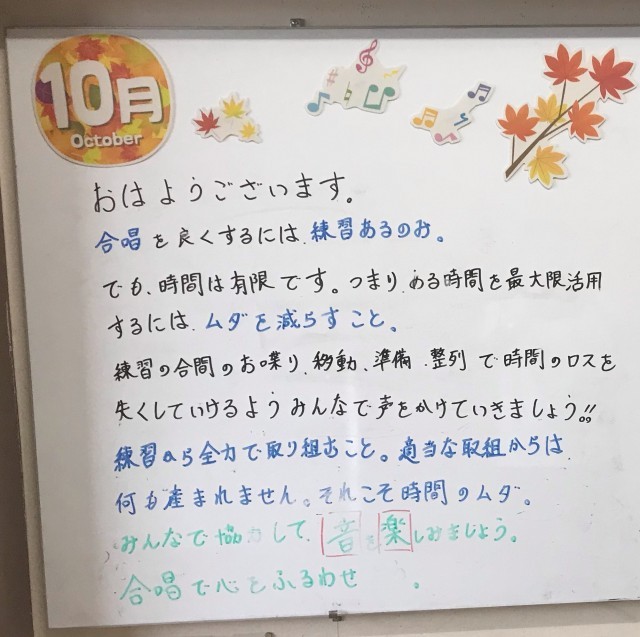 10月
October
おはようございます。
合唱を良くするには、練習あるのみ。
でも、時間は有限です。つまり、ある時間を最大限活用
するには、ムダを減らすこと。
練習の合間のお喋り、移動、準備、整列で時間のロスを
失くしていけるようみんなで声をかけていきましょう!!
練習から全力で取り組むこと。適当な取組からは
何も産まれません。それこそ時間のムダ。
みんなで協力して、音を楽しみましょう。
合唱で心をふるわせ 。